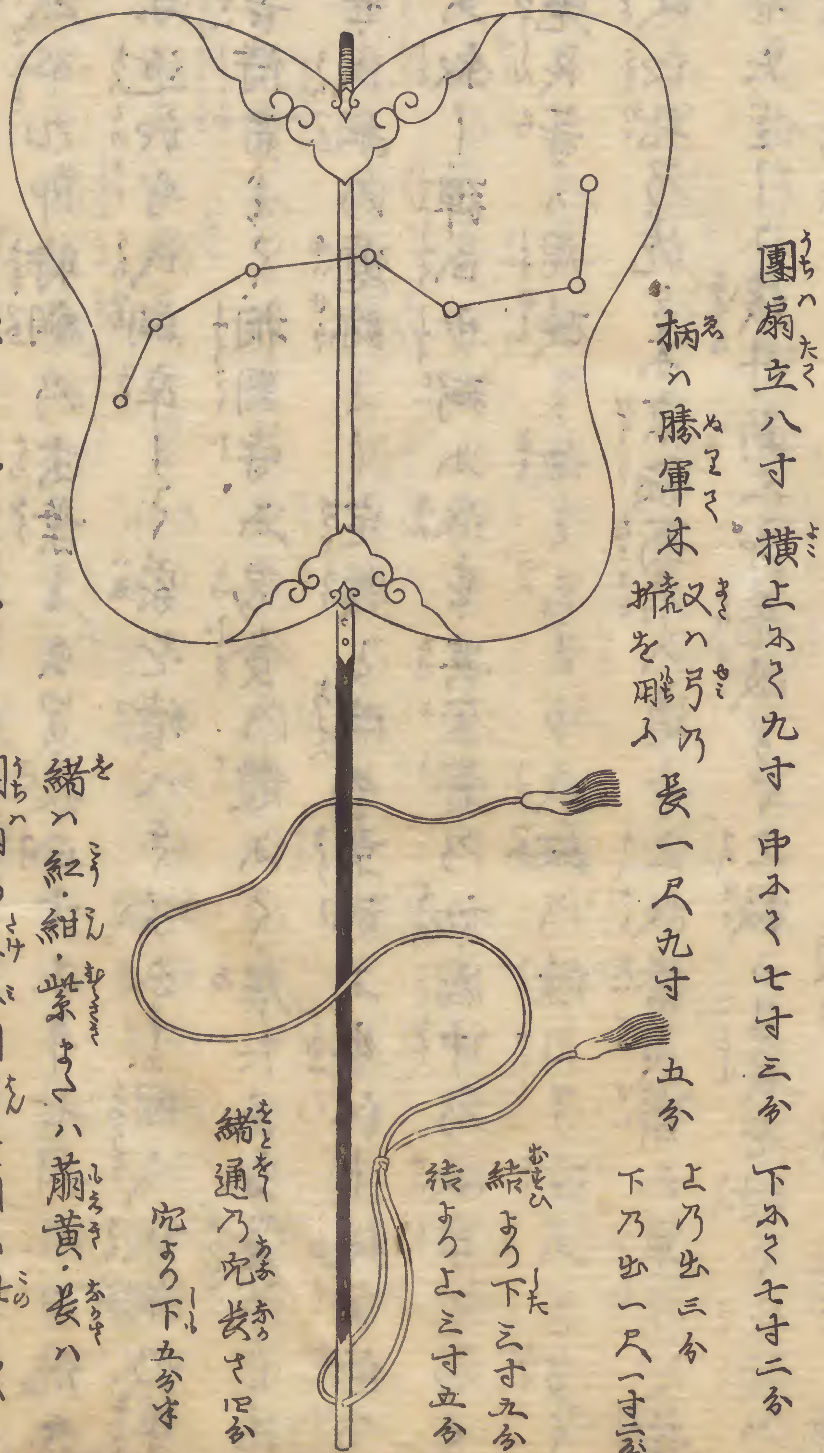 團扇立八寸 横上にて九寸 中にて七寸三分 下にて七寸二分
柄ハ勝軍木 又ハ弓乃折を用ふ 長一尺九寸五分
上乃出三分
下乃出一尺一寸二分
結より下三寸五分
結より上三寸五分
緒通乃穴長さ四分
穴より下五分半
緒ハ紅・紺・紫または萠黄・長ハ